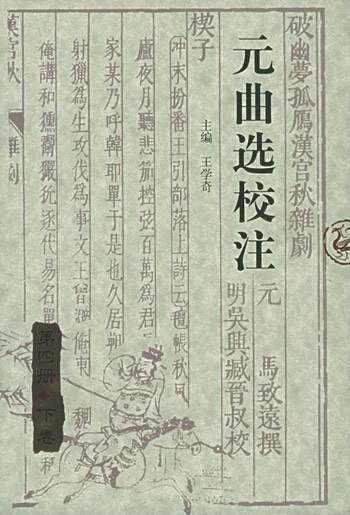 破幽夢孤鴈漢宮秋雜劇
元曲选校注
主编 王学奇
元 馬致遠撰
明吳興臧晉叔校
楔子
冲末扮番王引部落上詩云氊帳秋風
廬夜月聽悲笳控弦百萬為君
家某乃呼韓耶單于是也久居朔
射獵為生攻伐為事文王曾避俺東 魏
俺講和獯鬻玁狁逐代易名單
漢宮秋 雜劇
第四册 下卷